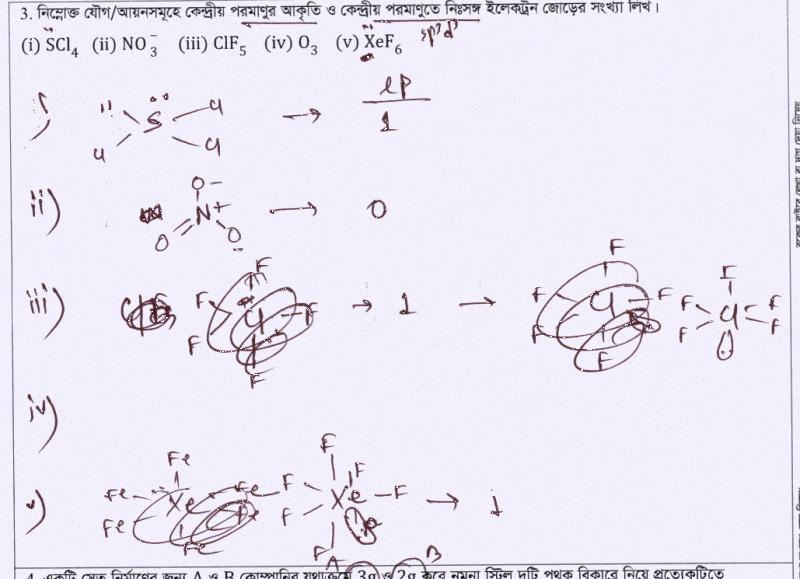 3. নিম্নোক্ত যৌগ/আয়নসমূহে কেন্দ্রীয় পরমাণুর আকৃতি ও কেন্দ্রীয় পরমাণুতে নিঃসঙ্গ ইলেকট্রন জোড়ের সংখ্যা লিখ।
(i) SCl₄ (ii) NO₃⁻ (iii) ClF₅ (iv) O₃ (v) XeF₆
sp³d³
i)
S Cl Cl Cl
→ lp
1
ii)
O⁻
N⁺
O O
→ 0
iii)
F
F Cl F
F
F
→ 1 →
F
F Cl F
F
F
F
F Cl F
F F
iv)
v)
Fe
Fe Xe Fe
Fe Fe
Fe
F
F Xe F
F F
F
→ 1
A B
4. একটি সেতু নির্মাণের জন্য A ও B কোম্পানির যথাক্রমে 3g ও 2g করে নমুনা স্টিল দুটি পৃথক বিকারে নিয়ে প্রত্যেকটিতে